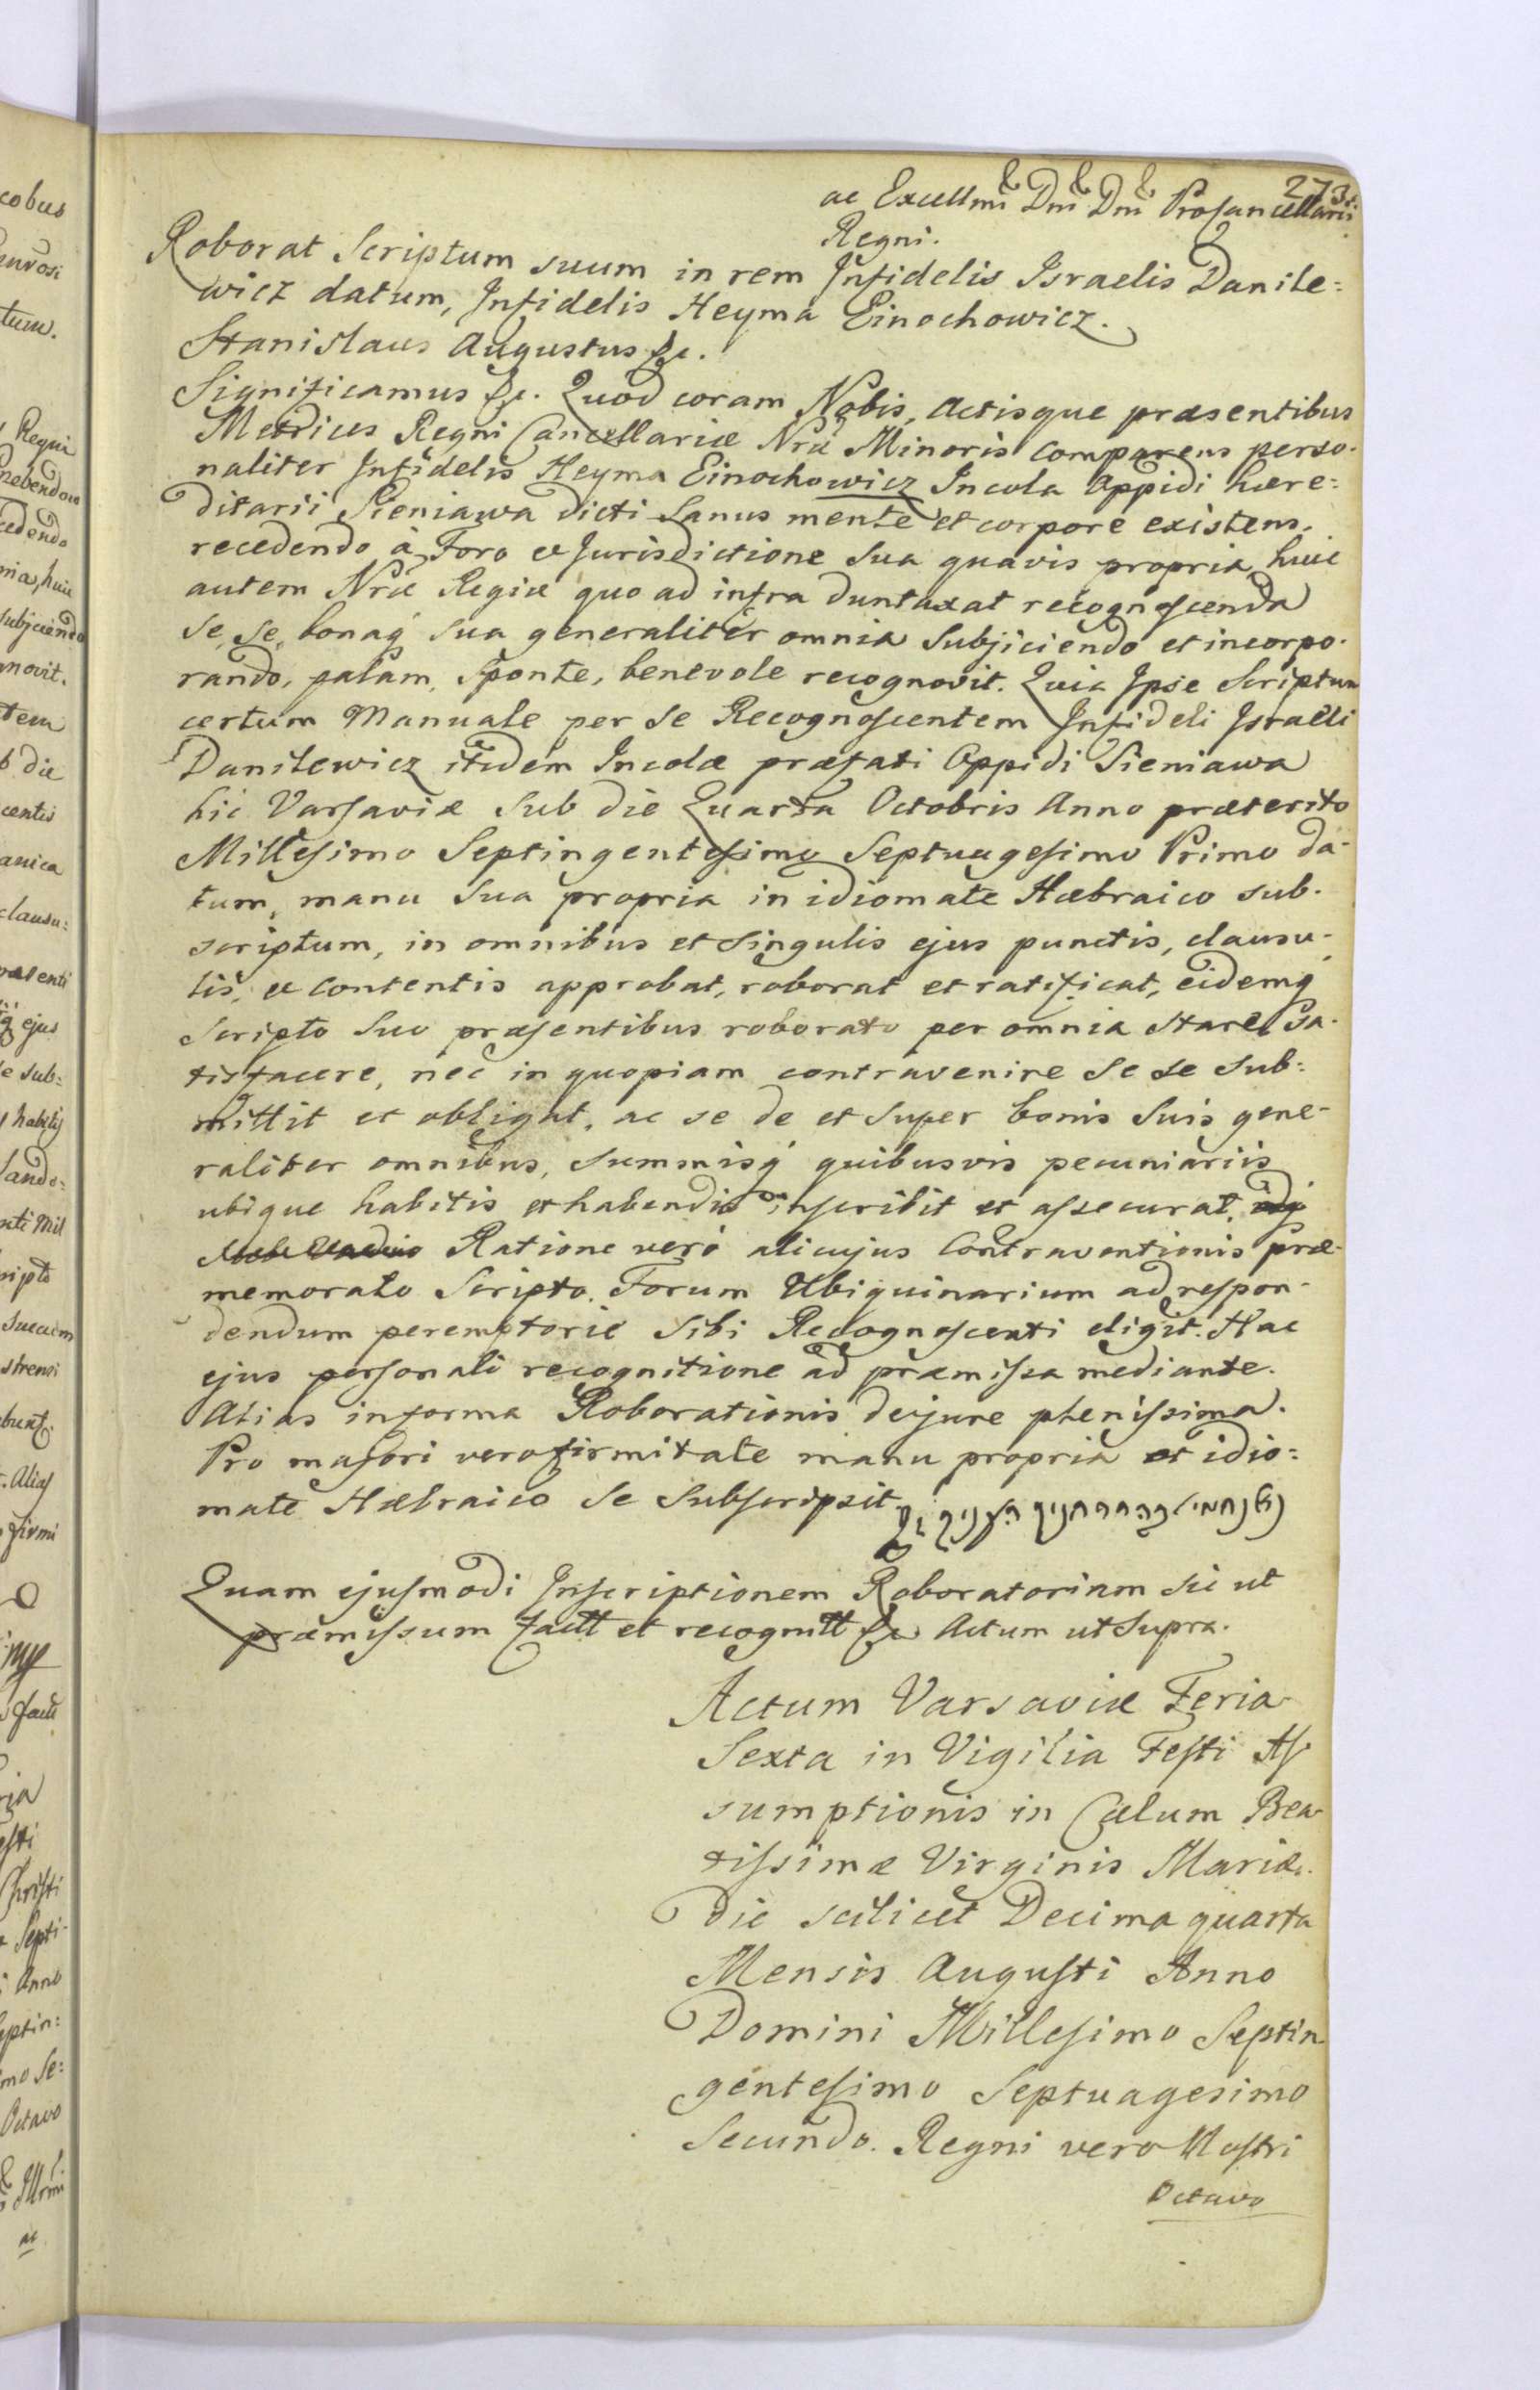 273.
ac Excellmi Dni Dni Procancellarii
Regni.
Roborat Scriptum suum in rem Infidelis Israelis Danile=
wicz datum, Infidelis Heyma Einochowicz.
Stanislaus Augustus &c.
Significamus &c. Quod coram Nobis, Actisque præsentibus
Metrices Regni Cancellariæ Nræ Minoris comparens perso-
naliter Infidelis Heyma Einochowicz Incola Oppidi hære=
ditarii Sieniawa dicti Sanus mente et corpore existens.
recedendo à Foro et Jurisdictione sua quavis propria, huic
autem Nræ Regiæ quo ad infra duntaxat recognoscenda
se, se, bonaq́ sua generaliter omnia Subjiciendo et incorpo-
rando, palam, sponte, benevole recognovit. Quia Ipse Scriptum
certum Manuale per se Recognoscentem Infideli Israeli
Danilewicz itidem Incolæ præfati Oppidi Sieniawa
hic Varsaviæ sub die Quarta Octobris Anno præterito
Millesimo Septingentesimo Septuagesimo Primo da-
tum, manu sua propria in idiomate Hæbraico sub-
scriptum, in omnibus et singulis ejus punctis, clausu-
lis, et contentis approbat, roborat et ratificat, eidemq́
scripto suo præsentibus roborato per omnia stare, sa-
tisfacere, nec in quopiam contravenire se se sub=
mittit et obligat, ac se de et super bonis suis gene-
raliter omnibus, summisq́ quibusvis pecuniariis
ubique habitis et habendis inscribit et assecurat, idq́
sub vadio Ratione verò alicujus Contraventionis præ-
memorato Scripto. Forum Ubiquinarium ad respon-
dendum peremptoriè sibi Recognoscenti eligit. Hac
ejus personali recognitione ad præmissa mediante.
Alias in forma Roborationis de jure plenissima.
Pro majori vero firmitate manu propria et idio=
mate Hæbraico se Subscripsit
Quam ejusmodi Inscriptionem Roboratoriam sic ut
præmissum factt et recognitt &c Actum ut supra.
Actum Varsaviæ Feria
Sexta in Vigilia Festi As
sumptionis in Cælum Bea
tissimæ Virginis Mariæ.
die scilicet Decima quarta
Mensis Augusti Anno
Domini Millesimo Septin
gentesimo Septuagesimo
Secundo. Regni vero Nostri
Octavo